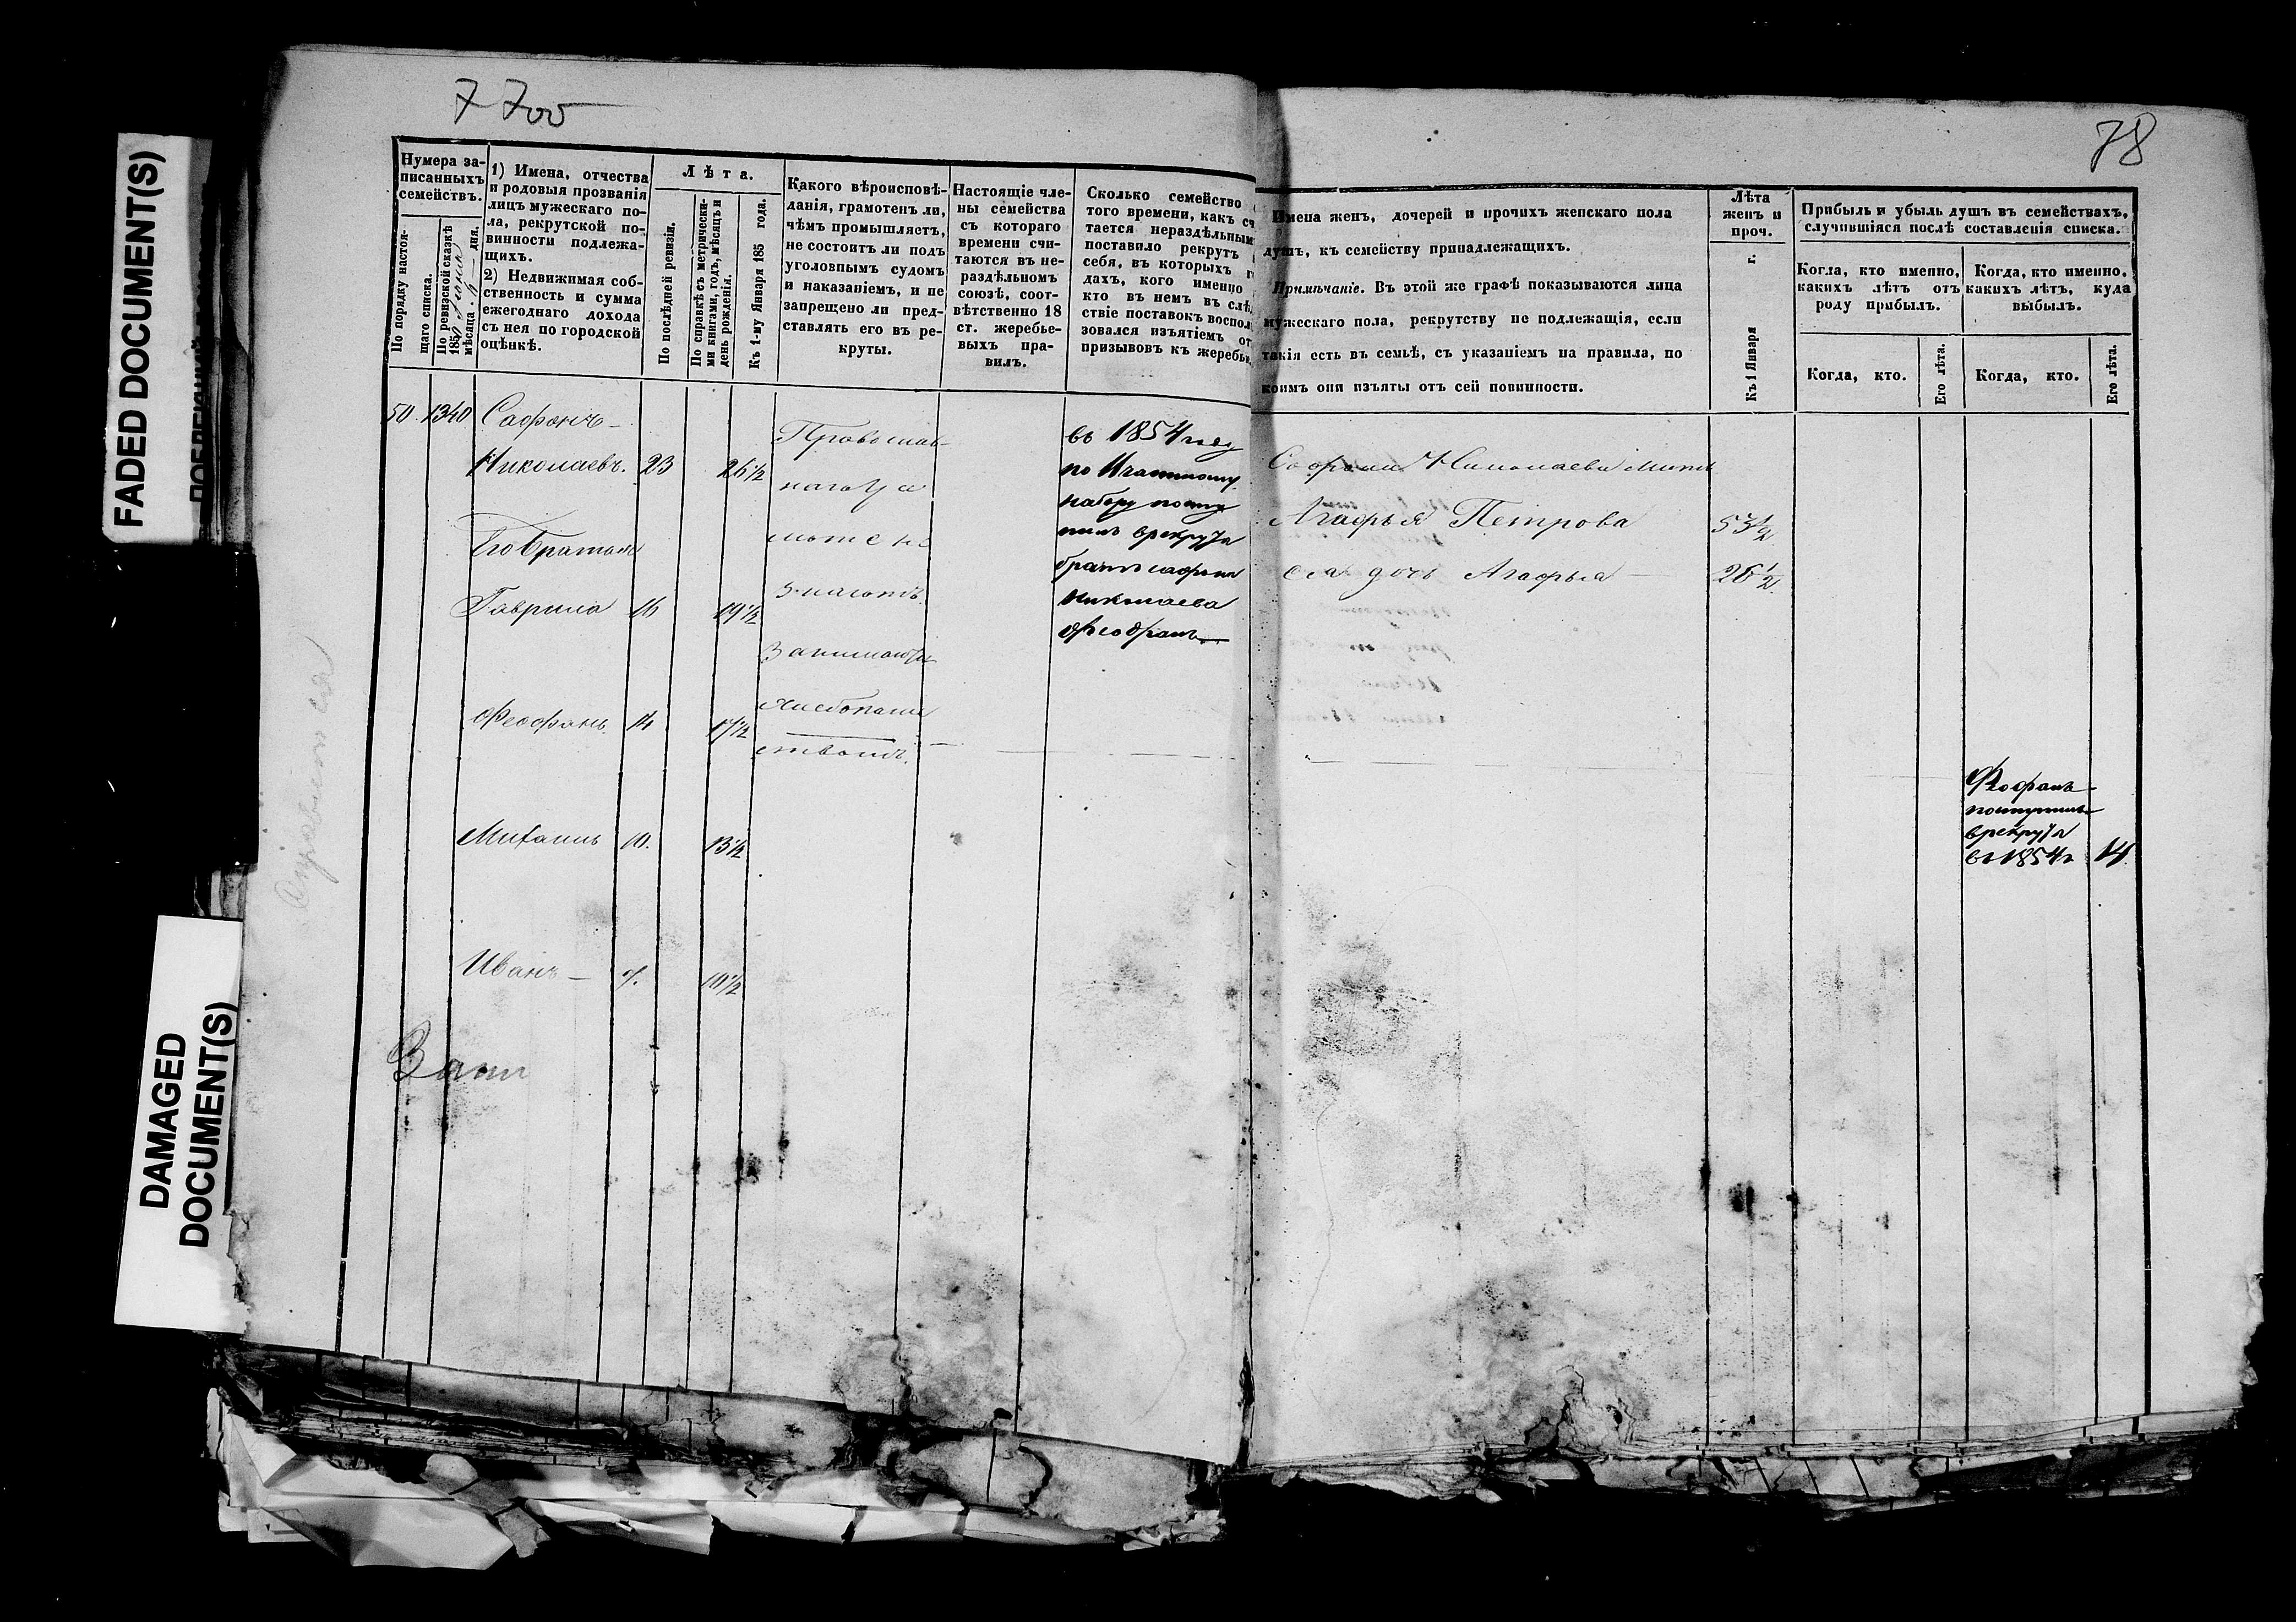 FADED DOCUMENT(S)
DAMAGED
DOCUMENT(S)
7 700
78
Нумера за-
писанныхъ
семействъ.
По порядку настоя-
щаго списка.
По ревизской сказкѣ
1850
мѣсяца дня.
1) Имена, отчества
и родовыя прозванія
лицъ мужескаго по-
ла, рекрутской по-
винности подлежа-
щихъ.
2) Недвижимая соб-
ственность и сумма
ежегоднаго дохода
съ нея по городской
оцѣнкѣ.
Лѣта.
По послѣдней ревизіи.
По справкѣ съ метрически-
ми книгами, годъ, мѣсяцъ и
день рожденія.
Къ 1-му Января 185 года.
Какого вѣроисповѣ-
данія, грамотенъ ли,
чѣмъ промышляетъ,
не состоитъ ли подъ
уголовнымъ судомъ
и наказаніемъ, и не
запрещено ли пред-
ставлять его въ ре-
круты.
Настоящіе чле-
ны семейства
съ котораго
времени счи-
таются въ не-
раздѣльномъ
союзѣ, соот-
вѣтственно 18
ст. жеребье-
выхъ пра-
вилъ.
Сколько семейство
того времени, какъ сч
тается нераздѣльным
поставило рекрутъ
себя, въ которыхъ г
дахъ, кого именно
кто въ немъ въ слѣ
ствіе поставокъ воспол
зовался изъятіемъ от
призывовъ къ жеребью
Имена женъ, дочерей и прочихъ женскаго пола
душъ, къ семейству принадлежащихъ.
Примѣчаніе. Въ этой же графѣ показываются лица
мужескаго пола, рекрутству не подлежащія, если
такія есть въ семьѣ, съ указаніемъ на правила, по
коимъ они изъяты отъ сей повинности.
Лѣта
женъ и
проч.
Къ 1 Января г.
Прибыль и убыль душъ въ семействахъ,
случившіяся послѣ составленія списка.
Когда, кто именно,
какихъ лѣтъ отъ
роду прибылъ.
Когда, кто именно,
какихъ лѣтъ, куда
выбылъ.
Когда, кто.
Его лѣта.
Когда, кто.
Его лѣта.
50. 1340 Сафонъ
Николаевъ. 23 26½
Его братья
Гаврила 16 19½
Феофанъ. 14 17½
Михаилъ 10. 13½
Иванъ 7. 10½
Православ-
наго
не
Занимаются
хлебопаше
ствомъ.
въ 1854 году
по
набору посту
пилъ врекруты
братъ сафона
николаева
феофанъ
Сафона Николаева мать
Агафья Петрова 53½
ея дочь Агафья 26½
Феофанъ
поступилъ
врекруты
въ 1854 г 14.